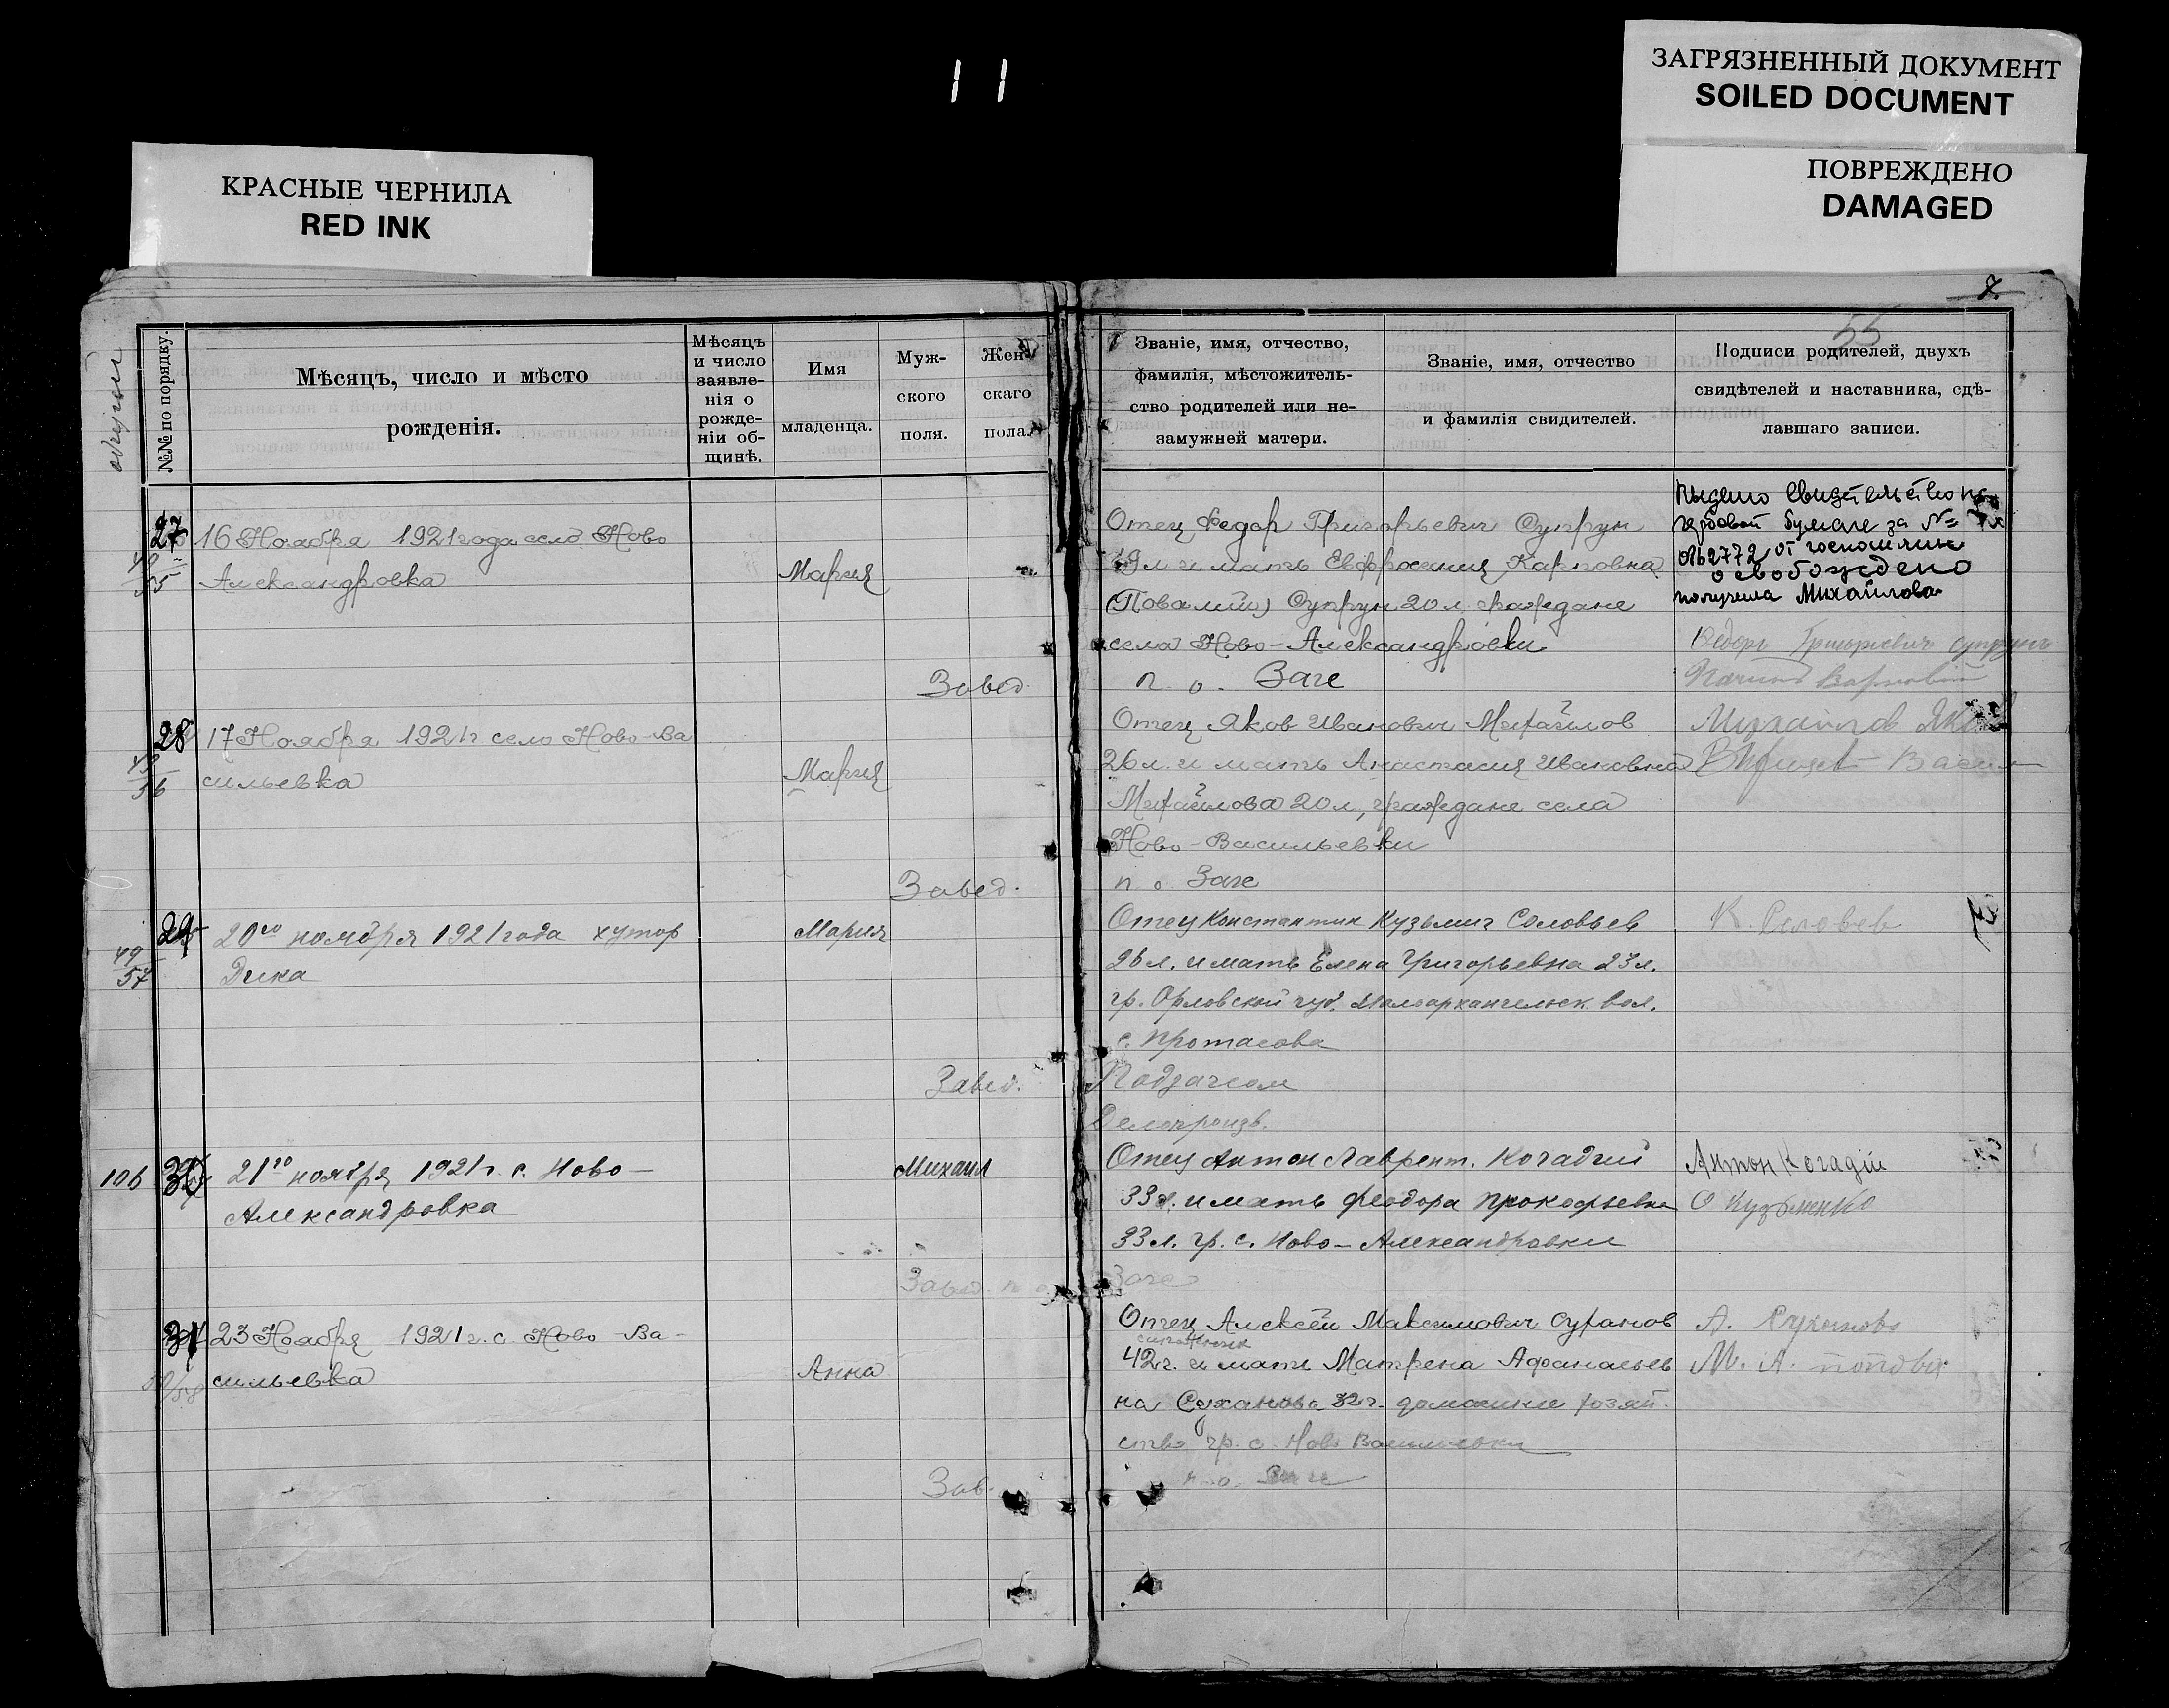 11
ЗАГРЯЗНЕННЫЙ ДОКУМЕНТ
SOILED DOCUMENT
ПОВРЕЖДЕНО
DAMAGED
КРАСНЫЕ ЧЕРНИЛА
RED INK
7.
55
№№ по порядку.
Мѣсяцъ, число и мѣсто
рожденія.
Мѣсяцъ
и число
заявле-
нія о
рожде-
ніи об-
щинѣ.
Имя
младенца.
Муж-
ского
поля.
Жен-
скаго
пола.
Званіе, имя, отчество,
фамилія, мѣстожитель-
ство родителей или не-
замужней матери.
Званіе, имя, отчество
и фамилія свидителей.
Подписи родителей, двухъ
свидѣтелей и наставника, сдѣ-
лавшаго записи.
27
16 Ноября 1921 года село Ново
Александровка
Мария
Отец Федор Григорьевич Супрун
19 л. и мать Евфросиния Карповна
(Повалий) Супрун 20 л. граждане
села Ново-Александровки
Завед. п. о. Загс
Выдано свидетельство на
гербовой бумаге за №
2772 от госпошлин
освобождено
получила Михайлова
Федоръ Григориевич Супрунъ
28
17 Ноября 1921 г село Ново-Ва
сильевка
Мария
Отец Яков Иванович Михайлов
26 л. и мать Анастасия Ивановна
Михайлова 20 л., граждане села
Ново-Васильевки
Завед. п о Загс
Михайлов Яков
29
49
57
20го ноября 1921 года хутор
Дика
Мария
Отец Константин Кузьмич Соловьев
26 л. и мать Елена Григорьевна 23 л.
гр. Орловской губ. Малоархангельск. вол.
с. Протасова
Завед. Подзагсом
Делопроизв.
К. Соловьев
106
30
21го ноября 1921 г. с. Ново-
Александровка
Михаил
Отец Антон Лаврент. Кочадий
33 л. и мать Феодора Прокофьевна
33 л. гр. с. Ново-Александровки
Завед. п о Загс
Антон Кочадій
О Кузьменко
31
23 Ноября 1921 г. с. Ново-Ва-
сильевка
Анна
Отец Алексей Максимович Суханов
42 г. и мать Матрена Афанасьев
на Суханова 32 г. домашнее хозяй-
ство гр. с. Ново Васильевки
Зав. п. о. Загс
А. Сухановъ
М. А. Попова